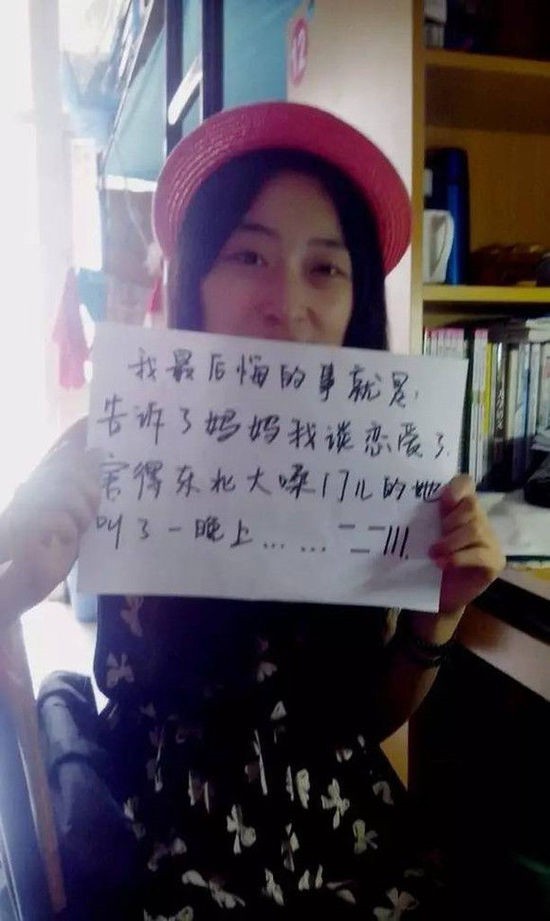 我最后悔的事就是,
告诉了妈妈我谈恋爱了.
害得东北大嗓门儿的她
叫了一晚上... ... 二二111.
12